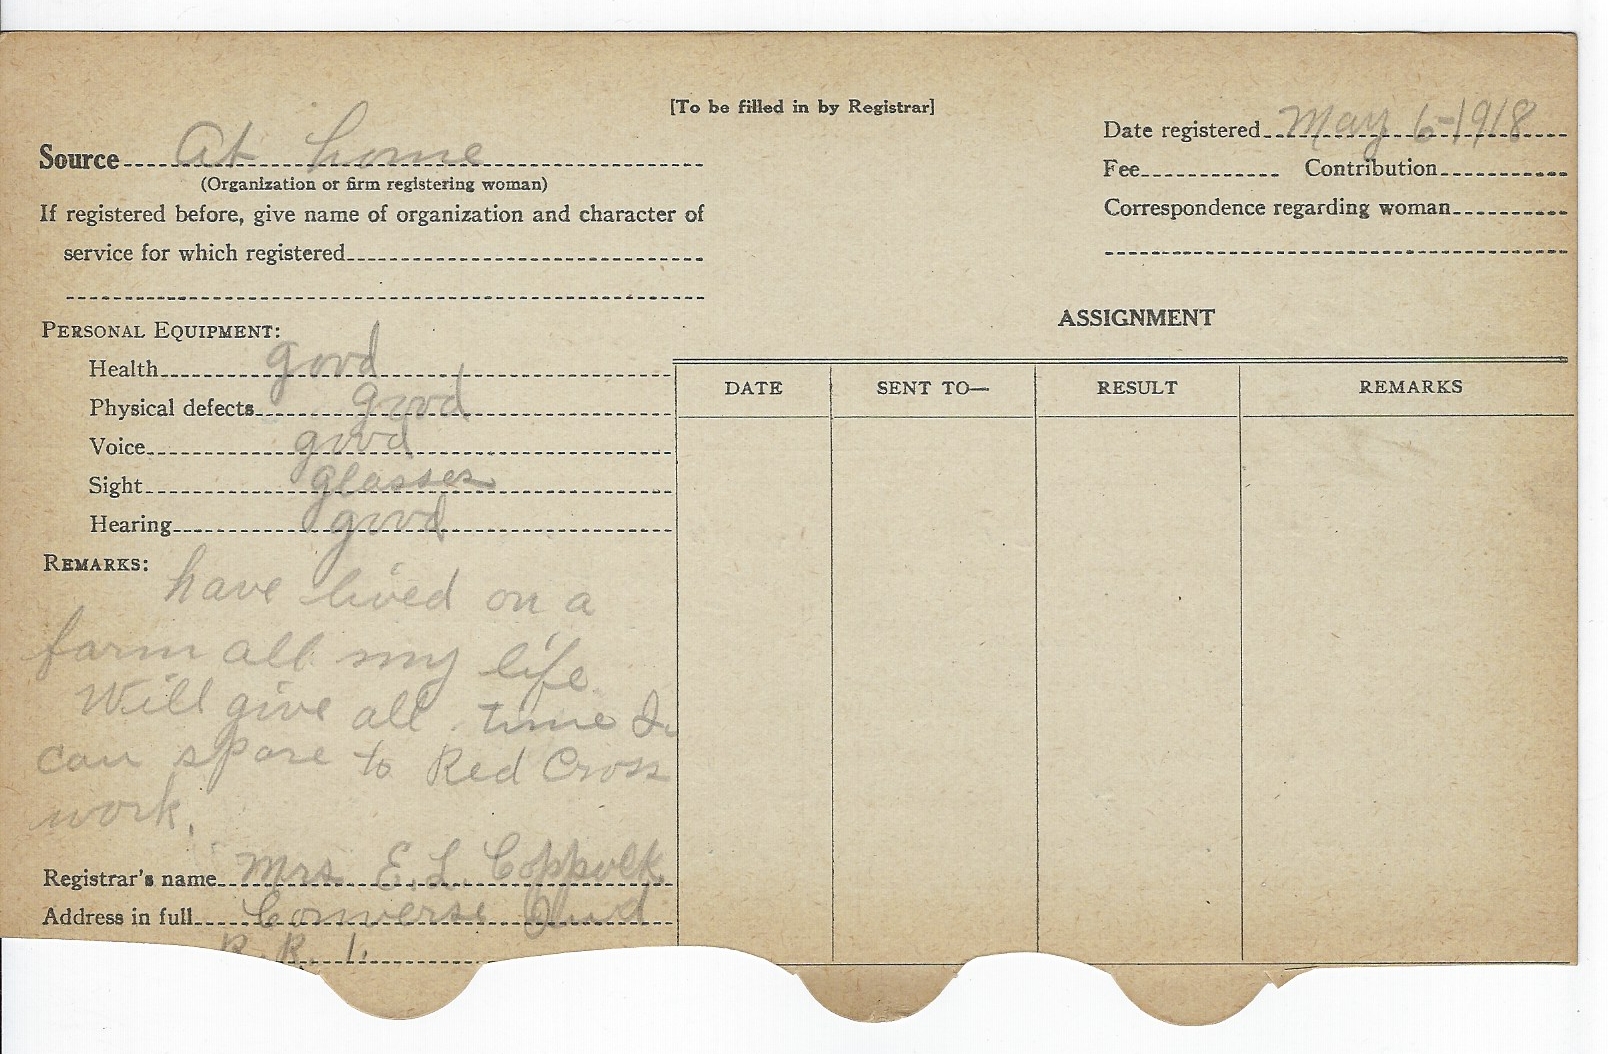 [To be filled in by Registrar]
Source At home
(Organization or firm registering woman)
If registered before, give name of organization and character of
service for which registered
Date registered May 6-1918
Fee Contribution
Correspondence regarding woman
PERSONAL EQUIPMENT:
Health good
Physical defects good
Voice good
Sight glasses
Hearing good
REMARKS:
have lived on a
farm all my life
Will give all time I
can spare to Red Cross
work.
Registrar's name Mrs E. L. Coppock
Address in full Converse Ind
R. R. 1.
ASSIGNMENT
DATE SENT TO— RESULT REMARKS